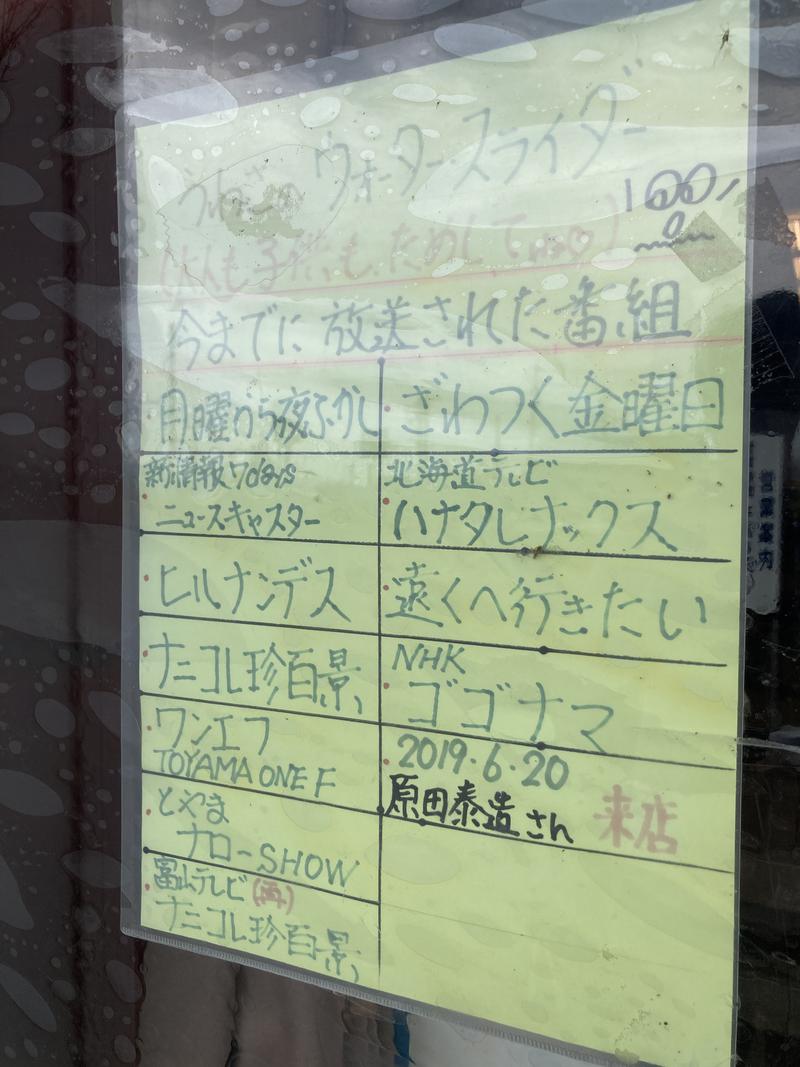 うわさの ウォータースライダー
100円
大人も子供も ためしてね
今までに 放送された番組
月曜から夜ふかし
新情報7days
ニュースキャスター
ヒルナンデス
ナニコレ珍百景
ワンエフ
TOYAMA ONE F
とやま
ナローSHOW
富山テレビ(再)
ナニコレ珍百景
ざわつく金曜日
北海道テレビ
ハナタレナックス
遠くへ行きたい
NHK
ゴゴナマ
2019.6.20
原田泰造さん 来店
営業案内